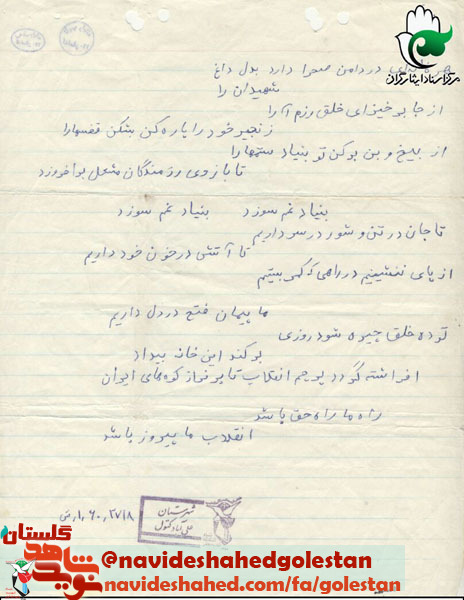 مرکز اسناد ایثارگران
هر لاله‌ای در دامن صحرا دارد بدل داغ
شهیدان را
از جا برخیز ای خلق رزم آرا
زنجیر خود را پاره کن بشکن قفسها را
از بیخ و بن بر کن تو بنیاد ستمها را
تا بازوی رزمندگان مشعل برافروزد
بنیاد غم سوزد بنیاد غم سوزد
تا جان در تن و شور در سر داریم
تا آتشی در خون خود داریم
از پای ننشینیم در راهی که کمر بستیم
ما پیمان فتح در دل داریم
توده خلق چیره شود روزی
بر کند این خانه بیداد
افراشته گردد پرچم انقلاب تا بر فراز کوه‌های ایران
راه ما راه حق باشد
انقلاب ما پیروز باشد
شهرستان
علی آباد کتول
گلستان
نوید شاهد
@navideshahedgolestan
navideshahed.com/fa/golestan